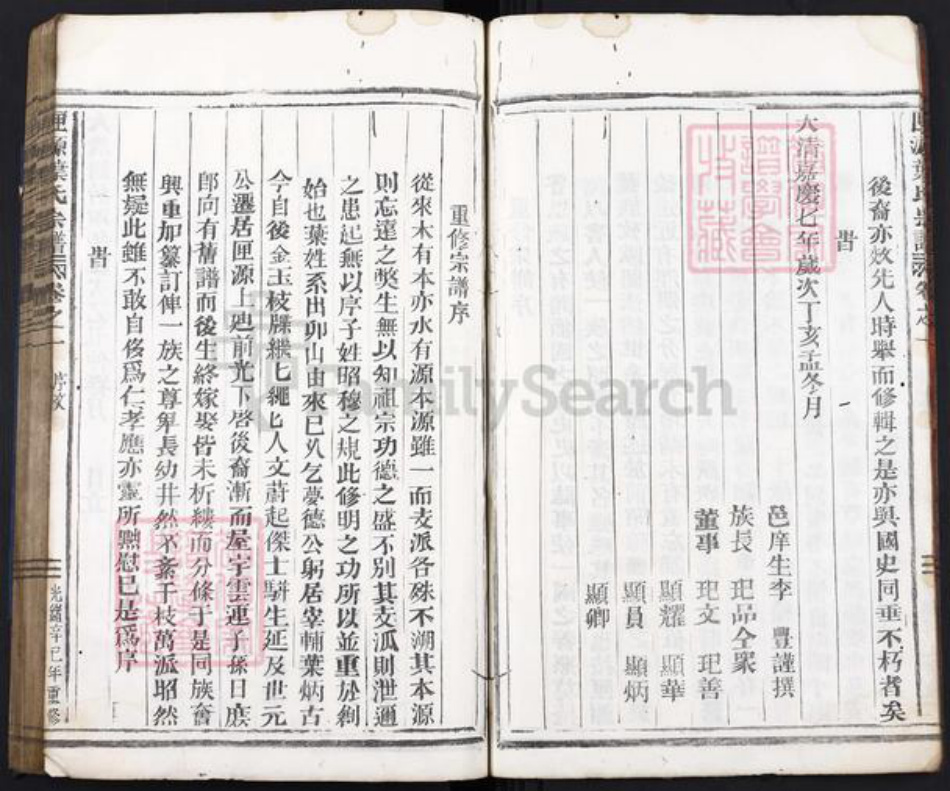 後裔亦效先人時舉而修輯之是亦與國史同垂不朽者矣
旹
大清嘉慶七年歲次丁亥孟冬月
邑庠生李 豐謹撰
族長 玘品仝眾
董事 玘文 玘善
顯耀 顯華
顯員 顯炳
顯卿
重修宗譜序
從來木有本亦水有源本源雖一而支派各殊不溯其本源
則忘遠之獘生無以知祖宗功德之盛不別其支泒則泄邇
之患起無以序子姓昭穆之規此修明之功所以並重於絇
始也葉姓系出卯山由來已久乞夢德公躬居宰輔葉炳古
今自後金玉枝牒緜匕繩匕人文蔚起傑士騈生延及世元
公遷居匣源上廸前光下啓後裔漸而屋宇雲連子孫日庶
卽向有舊譜而後生終嫁娶皆未析縷而分條于是同族奮
興重加纂訂俾一族之尊卑長幼井然不紊千枝萬派昭然
無疑此雖不敢自侈爲仁孝應亦靈所黙慰已是爲序
旹
匣源葉氏宗譜 卷之一 序
光緖辛巳年重修
FamilySearch